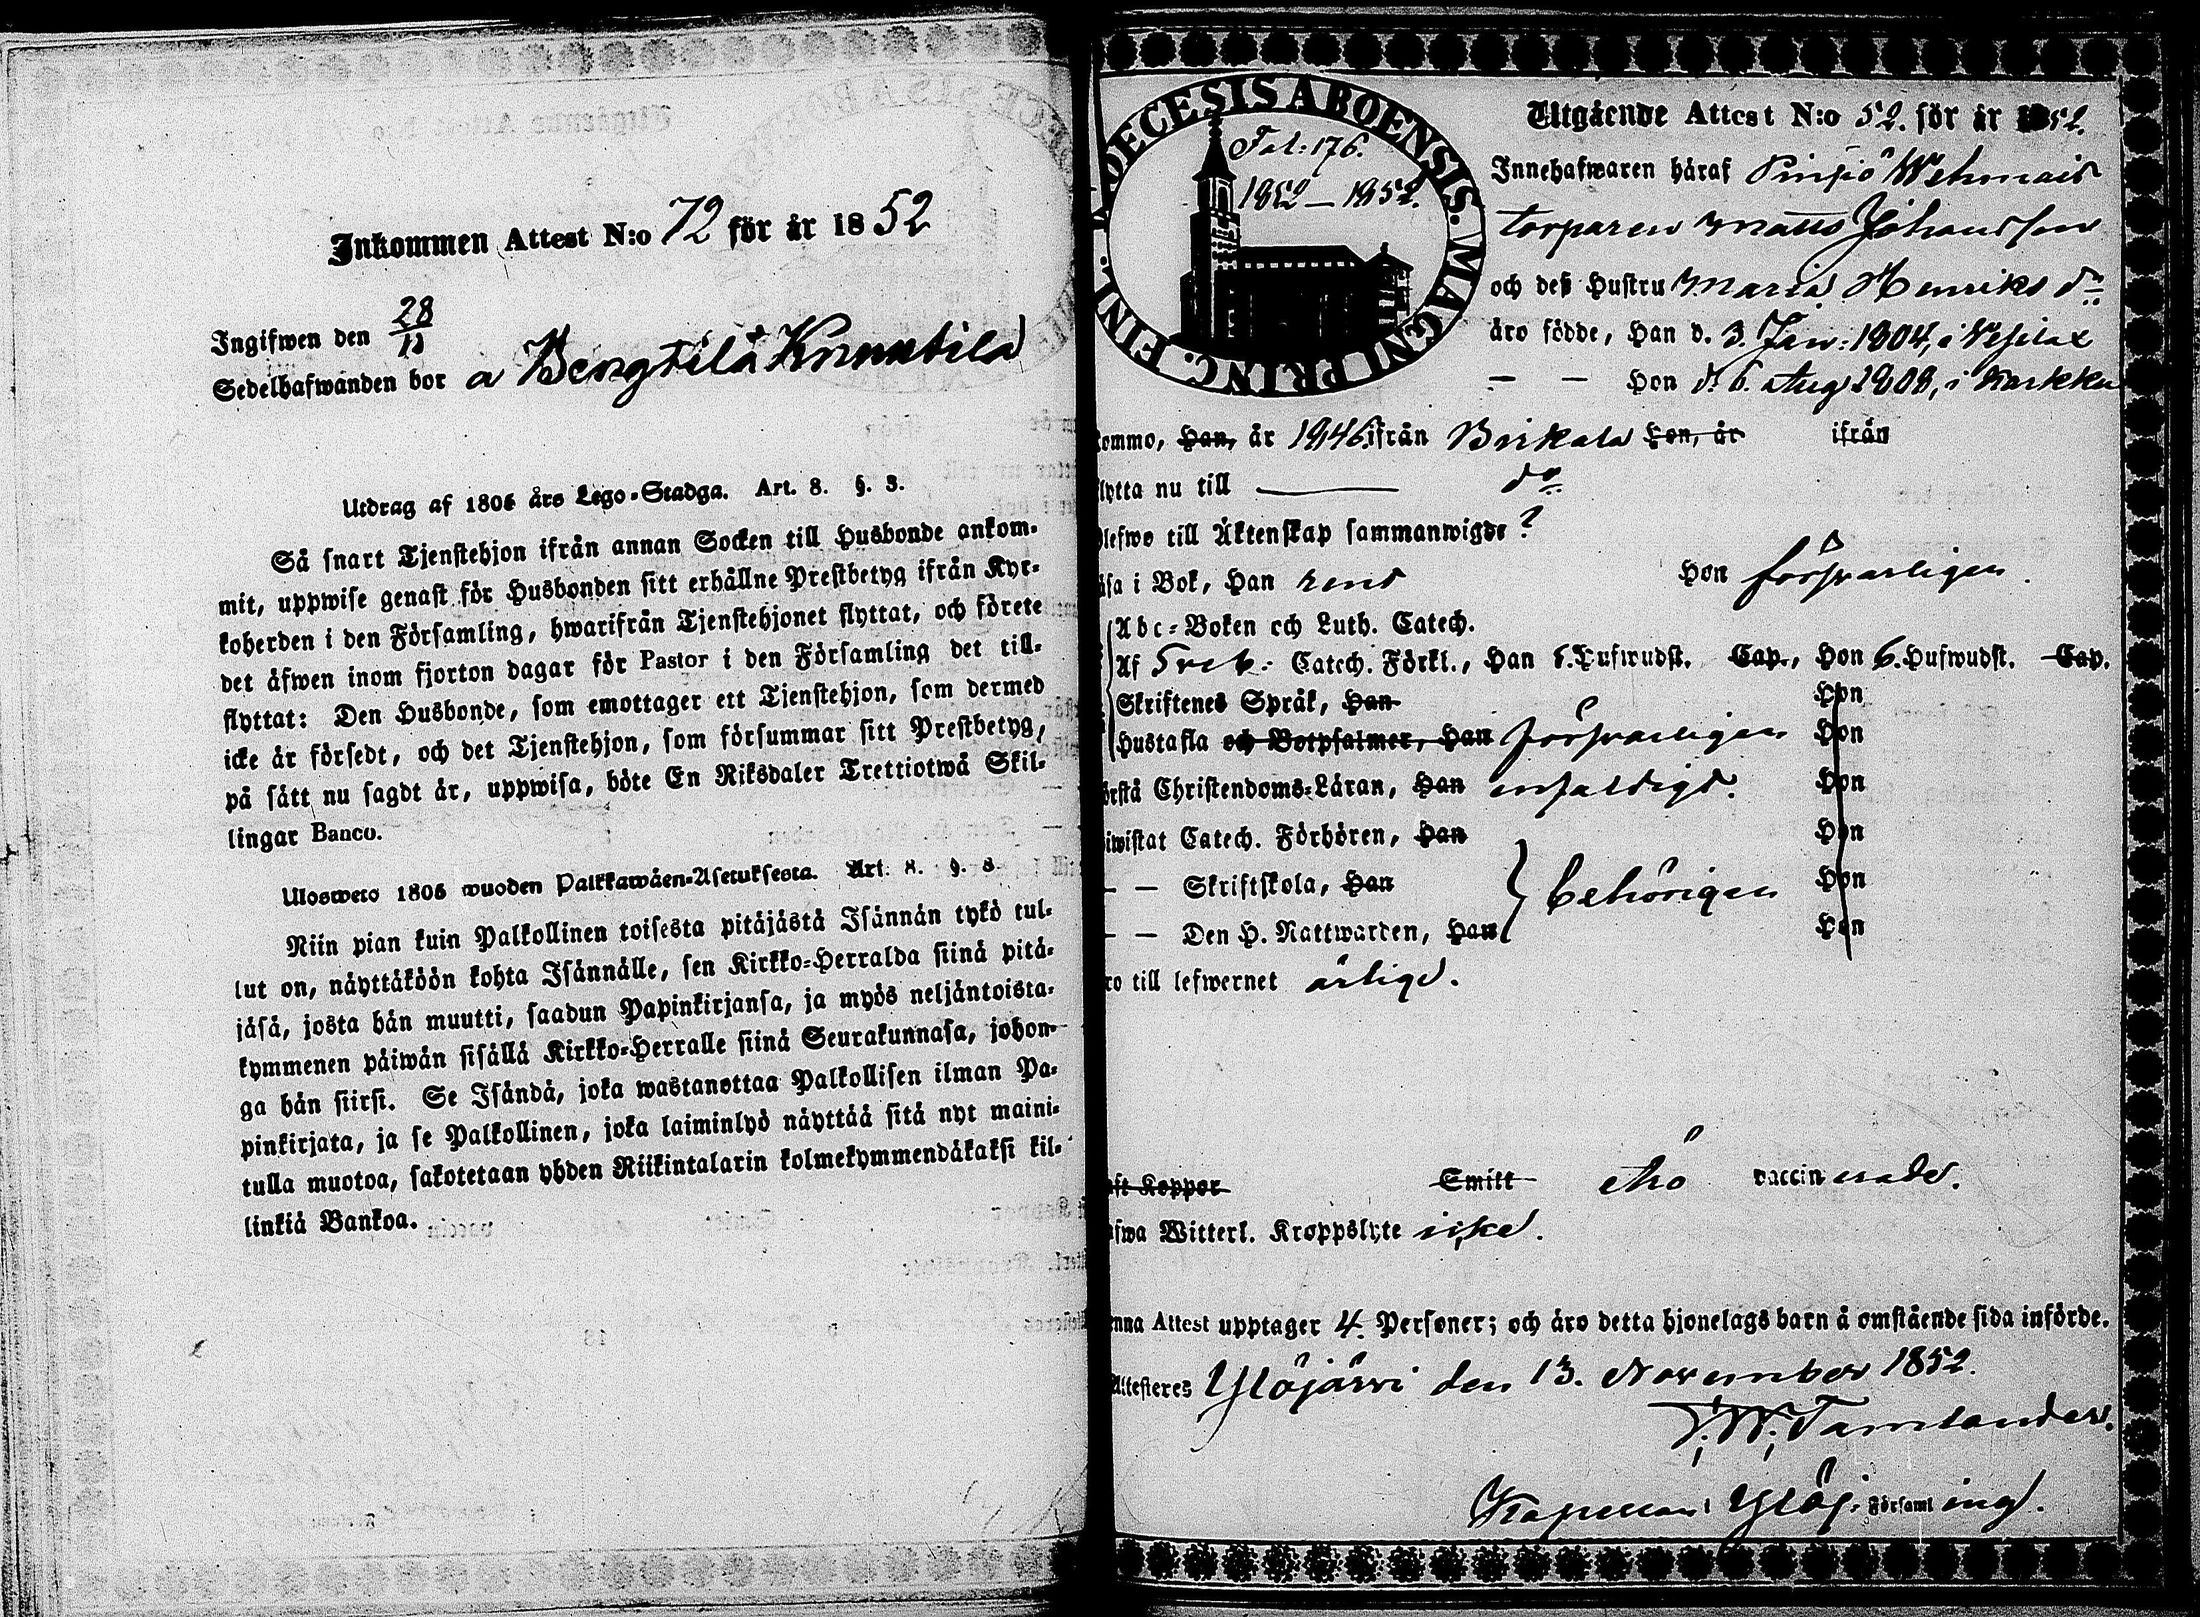 Inkommen Attest N:o 72 för år 1852
Ingifwen den 28/11
Sedelhafwanden bor å Bengtilä Knuutila
Utdrag af 1805 års Lego-Stadga. Art. 8. §. 3.
Så snart Tjenstehjon ifrån annan Socken till Husbonde ankom-
mit, uppwise genast för Husbonden sitt erhållne Prestbetyg ifrån Kyr-
koherden i den Församling, hwarifrån Tjenstehjonet flyttat, och förete
det äfwen inom fjorton dagar för Pastor i den Församling det till-
flyttat: Den Husbonde, som emottager ett Tjenstehjon, som dermed
icke är försedt, och det Tjenstehjon, som försummar sitt Prestbetyg,
på sätt nu sagdt är, uppwisa, böte En Riksdaler Trettiotwå Skil-
lingar Banco.
Ulosweto 1805 wuoden Palkkawäen-Asetuksesta. Art. 8. §. 3
Niin pian kuin Palkollinen toisesta pitäjästä Isännän tykö tul-
lut on, näyttäköön kohta Isännälle, sen Kirkko-Herralda siinä pitä-
jäsä, josta hän muutti, saadun Papinkirjansa, ja myös neljäntoista-
kymmenen päiwän sisällä Kirkko-Herralle siinä Seurakunnasa, johon-
ga hän siirsi. Se Isändä, joka wastanottaa Palkollisen ilman Pa-
pinkirjata, ja se Palkollinen, joka laiminlyö näyttää sitä nyt maini-
tulla muotoa, sakotetaan yhden Riikintalarin kolmekymmendäkaksi kil-
linkiä Bankoa.
DECESIS ABOENSIS. MAGNI PRINC. FINL.
Fol: 176.
1852 — 1852.
Utgående Attest N:o 52. för år 1852.
Innehafwaren häraf Pinsiö Wehmais
torparen Matts Johansson
och deß Hustru Maria Henriks dr
äro födde, Han d. 3. Jan: 1804, i Wesilax
— — Hon d. 6. Aug 1808, i Karkku
kommo, Han, år 1846. ifrån Birkala Hon, år ifrån
flytta nu till — do
blefwo till Äktenskap sammanwigde ?
läsa i Bok, Han rent Hon förswarligen.
Abc-Boken och Luth. Catech.
Af Sveb: Catech. Förkl., Han 6. Hufwudst. Cap., Hon 6. Hufwudst. Cap.
Skriftenes Språk, Han Hon
Hustafla och Botpsalmer, Han förswarligen Hon
örstå Christendoms-Läran, Han enfaldigt. Hon
iwistat Catech. Förhören, Han Hon
— — Skriftskola, Han behörigen Hon
— — Den H. Nattwarden, Han Hon
ro till lefwernet ärliga.
aft Koppor Smitt Äro vaccinerade.
afwa Witterl. Kroppslyte icke.
enna Attest upptager 4. Personer; och äro detta hjonelags barn å omstående sida införde.
Attesteres Ylöjärwi den 13. November 1852.
F. W. Tamlander.
Kapellan i Ylöj. Församling.